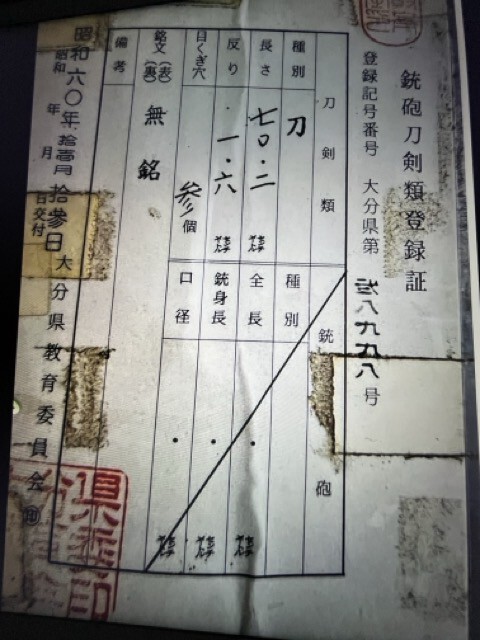 銃砲刀剣類登録証
登録記号番号 大分県第 弐八九九八 号
刀剣類
種別 刀
長さ 七〇・二 糎
反り 一・六 糎
目くぎ穴 参 個
銘文 (表) (裏) 無銘
備考
銃砲
種別
全長 ・ 糎
銃身長 ・ 糎
口径 ・ 糎
昭和六〇年拾壱月拾参日
昭和 年 月 日交付
大分県教育委員会 印